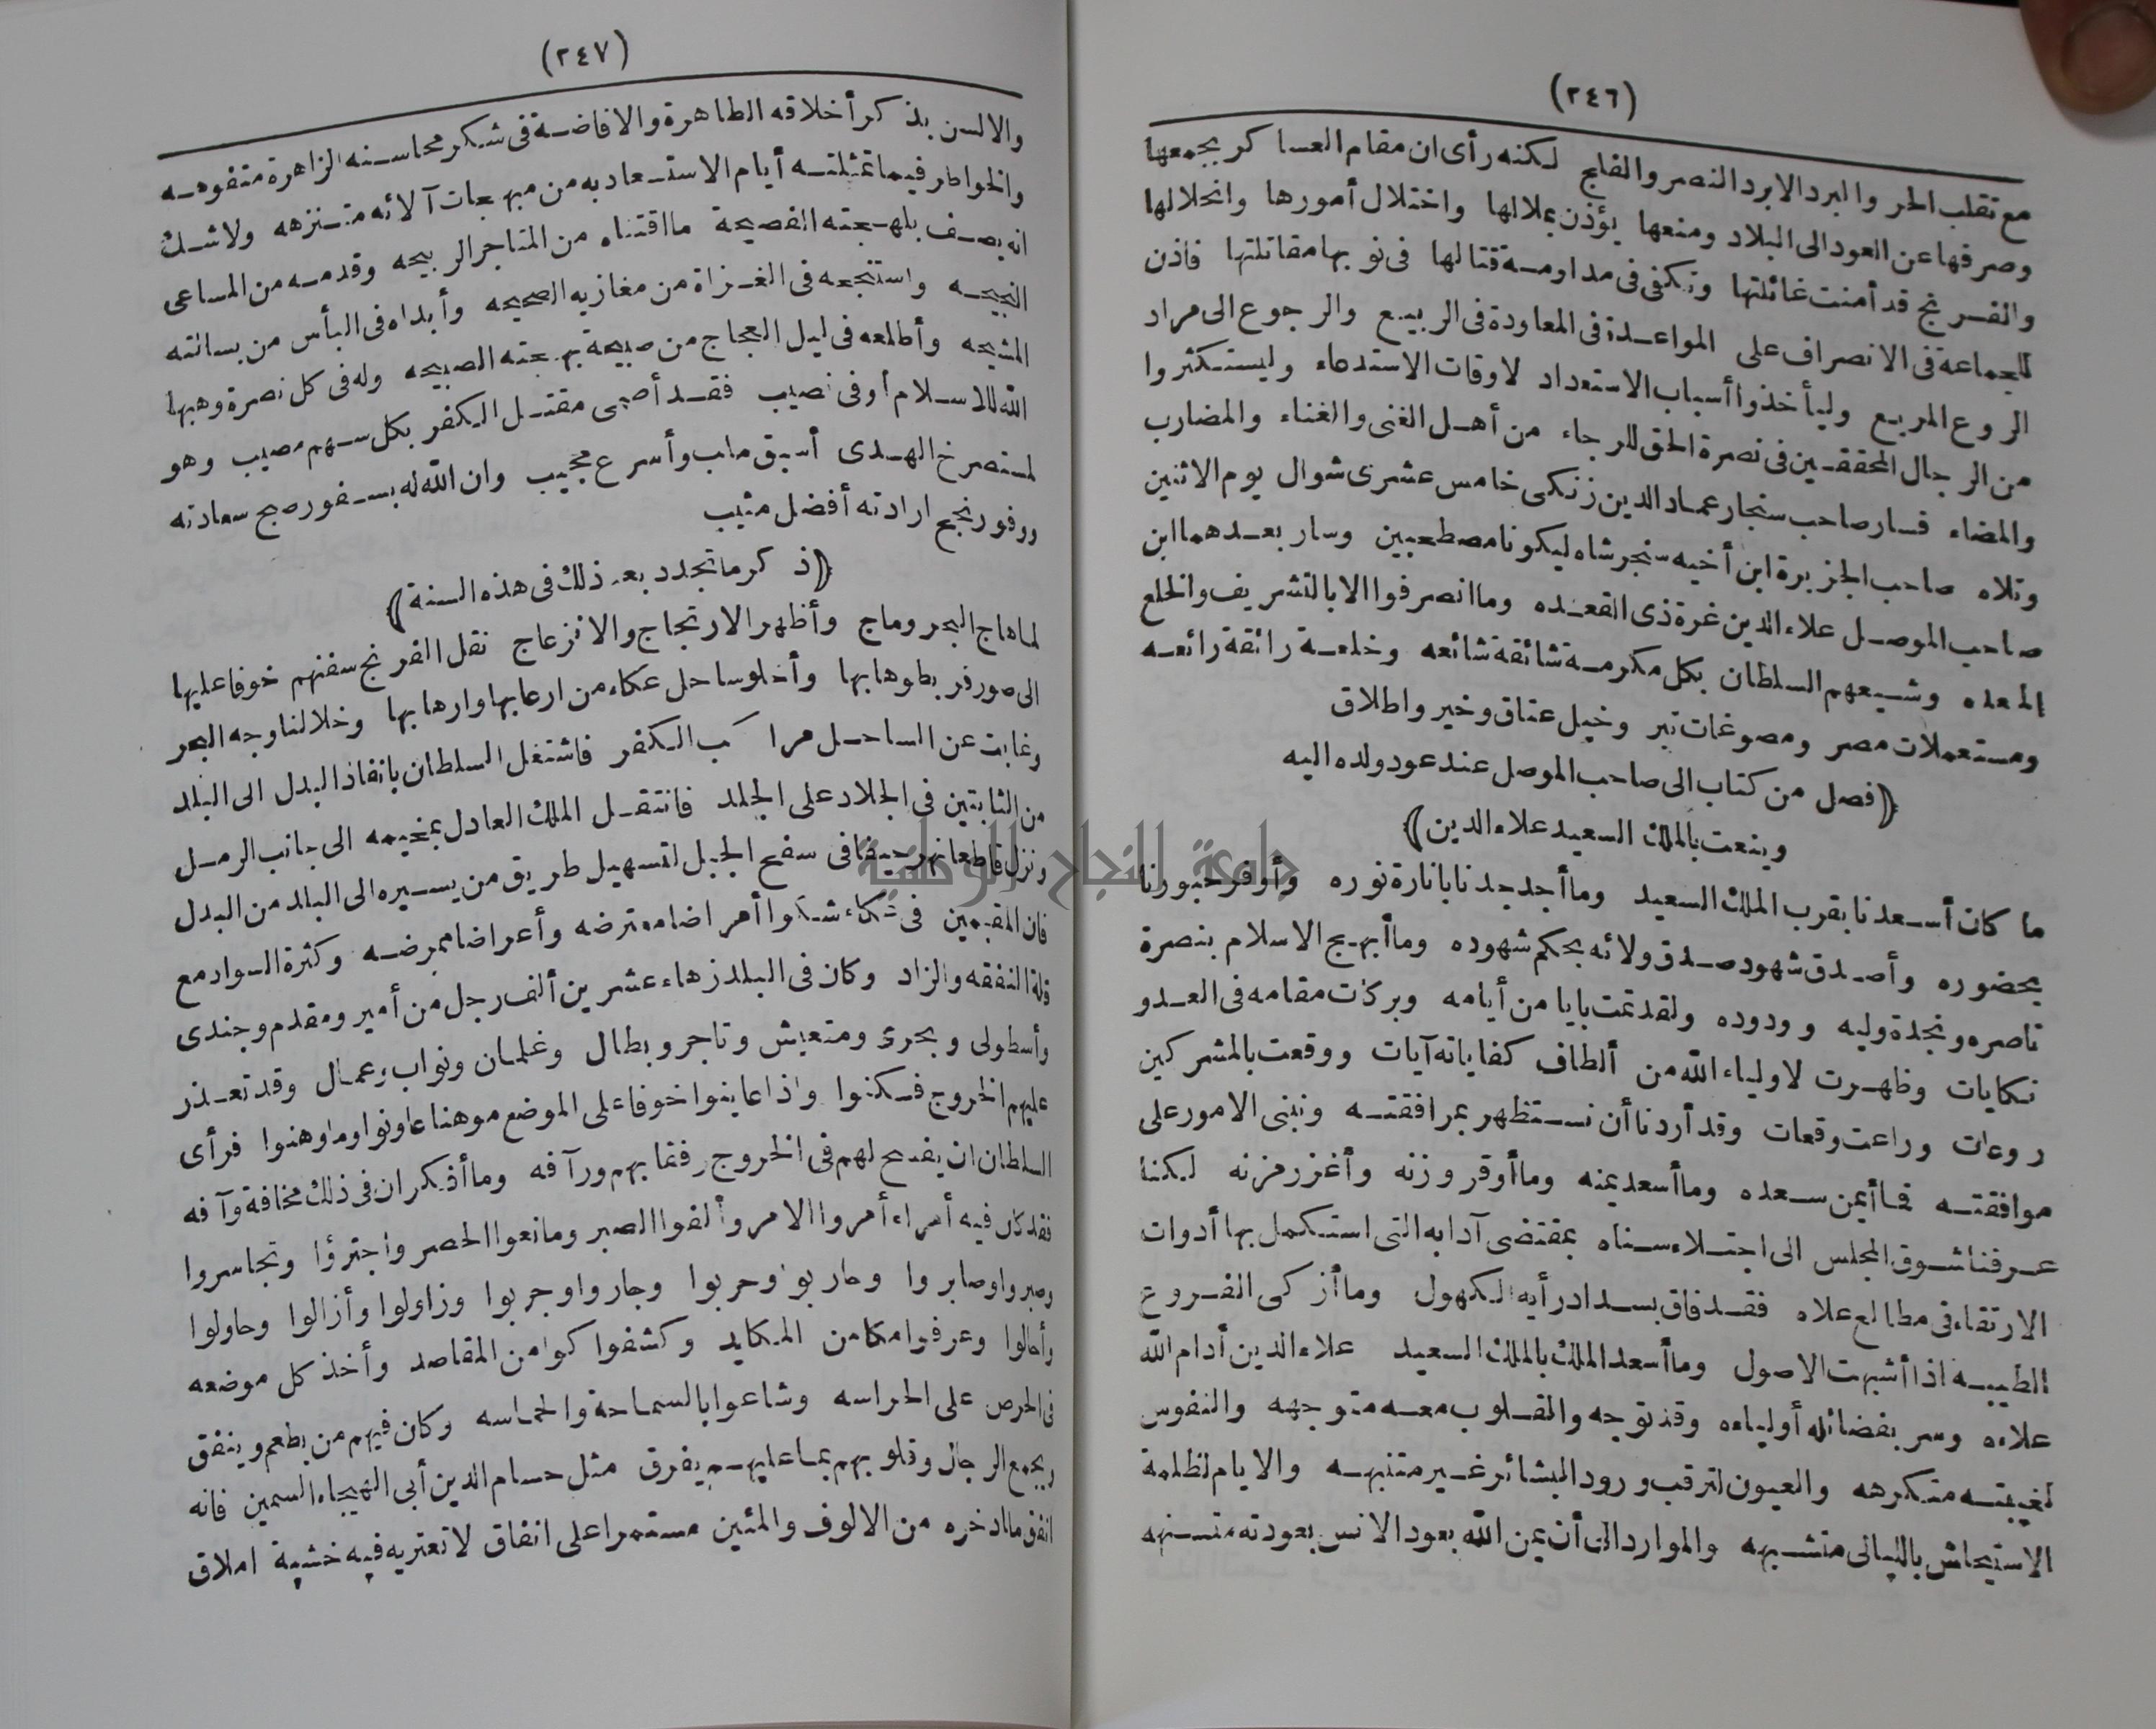 (٢٤٦)
مع تقلب الحر والبرد الابرد النصر والفلج لكنه رأى ان مقام العساكر بجمعها
وصرفها عن العود الى البلاد ومنعها يؤذن بملالها واختلال أمورها وانحلالها
والفرنج قد أمنت غائلتها وتكفى فى مداومة قتالها فى نوبها مقاتلتها فاذن
للجماعة فى الانصراف على المواعدة فى المعاودة فى الربيع والرجوع الى مراد
الروع المريع وليأخذوا أسباب الاستعداد لاوقات الاستدعاء وليستكثروا
من الرجال المحققين فى نصرة الحق للرجاء من أهل الغنى والغناء والمضارب
والمضاء فسار صاحب سنجار عماد الدين زنكى خامس عشرى شوال يوم الاثنين
وتلاه صاحب الجزيرة ابن أخيه سنجر شاه ليكونا مصطحبين وسار بعدهما ابن
صاحب الموصل علاء الدين غرة ذى القعده وما انصرفوا الا بالتشريف والخلع
المعده وشيعهم السلطان بكل مكرمة شائقة شائعه وخلعة رائقة رائعه
ومستعملات مصر ومصوغات تبر وخيل عتاق وخير واطلاق
﴿فصل من كتاب الى صاحب الموصل عند عود ولده اليه
وينعت بالملك السعيد علاء الدين﴾
ما كان أسعدنا بقرب الملك السعيد وما أجد جدنا بانارة نوره وأوفر حبورنا
بحضوره وأصدق شهود صدق ولائه بحكم شهوده وما أبهج الاسلام بنصرة
ناصره ونجدة وليه وودوده ولقد تمت بايامن أيامه وبركات مقامه فى العدو
نكايات وظهرت لاولياء الله من ألطاف كفاياته آيات ووقعت بالمشركين
روعات وراعت وقعات وقد أردنا أن نستظهر بمرافقته ونبنى الامور على
موافقته فما أيمن سعده وما أسعد يمنه وما أوقر وزنه وأغزر مزنه لكنا
عرفنا شوق المجلس الى اجتلاء سناه بمقتضى آدابه التى استكمل بها أدوات
الارتقاء فى مطالع علاه فقد فاق بسداد رأيه الكهول وما أزكى الفروع
الطيبة اذا أشبهت الاصول وما أسعد الملك بالملك السعيد علاء الدين أدام الله
علاءه وسر بفضائله أولياءه وقد توجه والقلوب معه متوجهه والنفوس
لغيبته متكرهه والعيون لترقب ورود البشائر غير متنبهه والايام لظلمة
الاستيحاش بالليالى متشبهه والموارد الى أن يمن الله بعود الانس بعودته متسنهه
(٢٤٧)
والالسن بذكر أخلاقه الطاهرة والافاضة فى شكر محاسنه الزاهرة متفوهه
والخواطر فيما تمثلته أيام الاستعاد به من مبهجات آلائه متنزهه ولا شك
انه يصف بلهجته الفصيحة ما اقتناه من المتاجر الربيحه وقدمه من المساعى
النجيحه واستنجعه فى الغزاة من مغازيه الصحيحه وأبداه فى البأس من بسالته
المشيحه وأطلعه فى ليل العجاج من صبيحة بهجته الصبيحه وله فى كل نصرة وهبها
الله للاسلام أوفى نصيب فقد أصمى مقتل الكفر بكل سهم مصيب وهو
لمستصرخ الهدى أسبق ملب وأسرع مجيب وان الله له بسفور صبح سعادته
ووفور نجح ارادته أفضل مثيب
﴿ذكر ما تجدد بعد ذلك فى هذه السنة﴾
لما هاج البحر وماج وأظهر الارتجاج والانزعاج نقل الفرنج سفنهم خوفا عليها
الى صور فربطوها بها وأخلوا ساحل عكاء من ارعابها وارهابها وخلا لنا وجه البحر
وغابت عن الساحل مراكب الكفر فاشتغل السلطان بانفاذ البدل الى البلد
من الثابتين فى الجلاد على الجلد فانتقل الملك العادل بمخيمه الى جانب الرمل
ونزل قاطعا نهر حيفا فى سفح الجبل لتسهيل طريق من يسيره الى البلد من البدل
فان المقيمين فى عكاء شكوا أمراضا معترضه وأعراضا ممرضه وكثرة السواد مع
قلة النفقه والزاد وكان فى البلد زهاء عشرين ألف رجل من أمير ومقدم وجندى
وأسطولى وبحرى ومتعيش وتاجر وبطال وغلمان ونواب وعمال وقد تعذر
عليهم الخروج فسكنوا واذا عاينوا خوفا على الموضع موهنا عاونوا وما وهنوا فرأى
السلطان ان يفسح لهم فى الخروج رفقا بهم ورآفه وما أفكر ان فى ذلك مخافة وآفه
فقد كان فيه أمراء أمروا الامر وألفوا الصبر ومانعوا الحصر واجترؤا وتجاسروا
وصبروا وصابروا وحاربوا وحربوا وجاروا وجربوا وزاولوا وأزالوا وحاولوا
وأحالوا وعرفوا مكامن المكايد وكشفوا كوامن المقاصد وأخذ كل موضعه
فى الحرص على الحراسه وشاعوا بالسماحة والحماسه وكان فيهم من يطعم وينفق
ويجمع الرجال وقلوبهم بما عليهم يفرق مثل حسام الدين أبى الهيجاء السمين فانه
انفق ما ادخره من الالوف والمئين مستمرا على انفاق لا تعتريه فيه خشية املاق
جامعة النجاح الوطنية